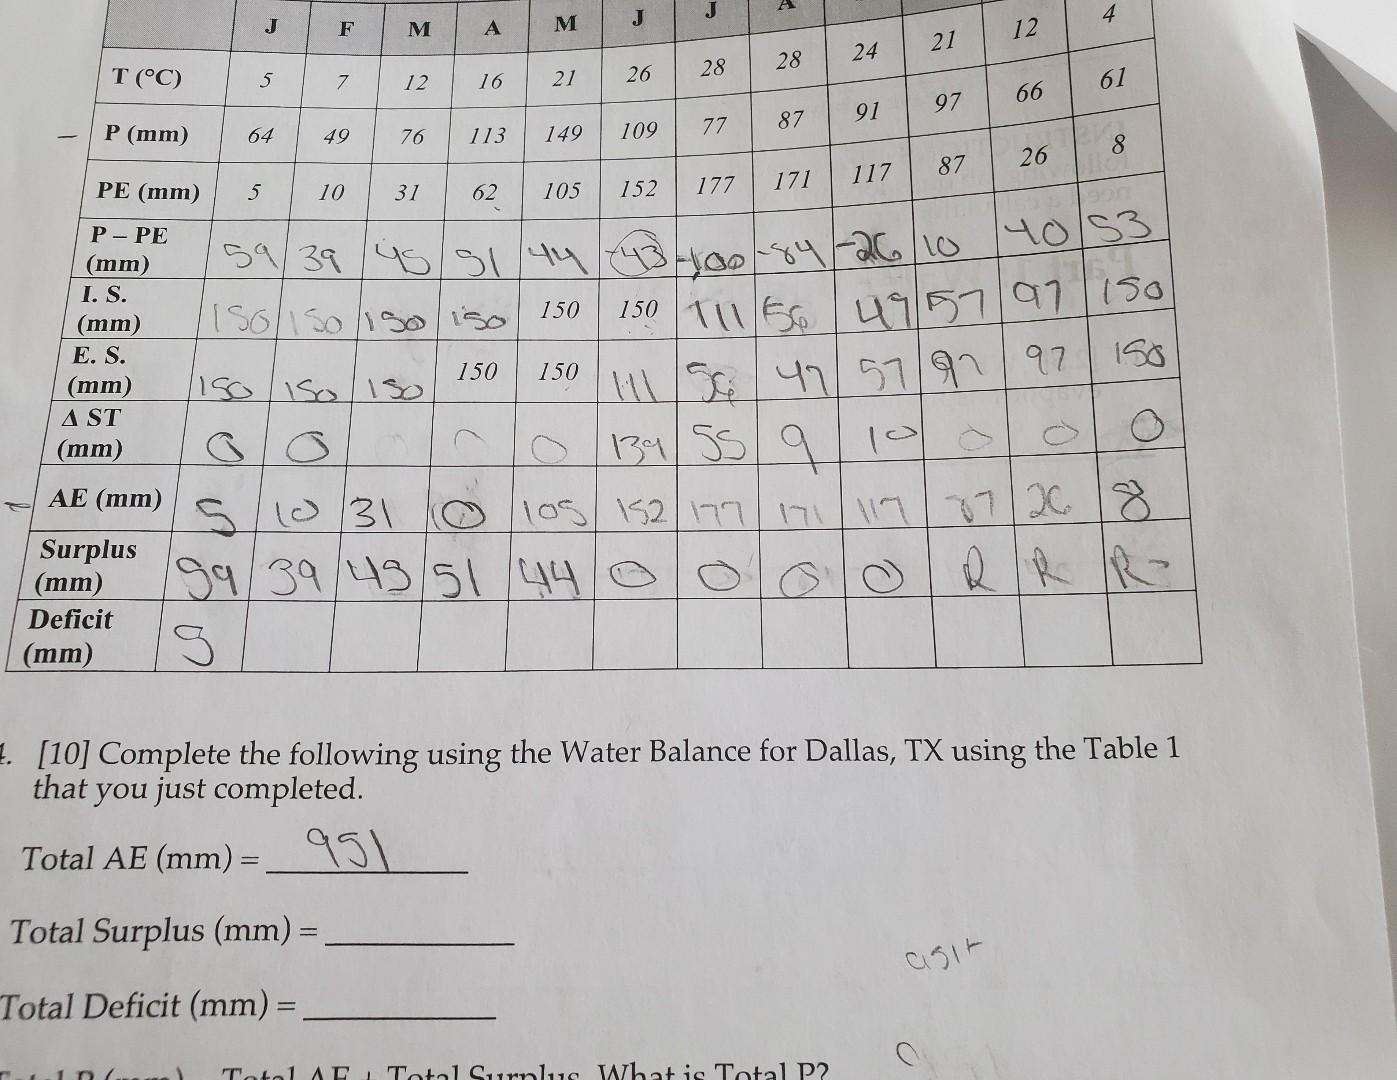 J F M A M J J A
T (°C) 5 7 12 16 21 26 28 28 24 21 12 4
P (mm) 64 49 76 113 149 109 77 87 91 97 66 61
PE (mm) 5 10 31 62 105 152 177 171 117 87 26 8
P – PE (mm) 59 39 45 51 44 -43 -100 -84 -26 10 40 53
I. S. (mm) 150 150 150 150 150 150 111 56 47 57 97 150
E. S. (mm) 150 150 150 150 150 111 56 47 57 97 97 150
Δ ST (mm) 0 0 0 0 139 55 9 10 0 0 0
AE (mm) 5 10 31 0 105 152 177 171 117 87 26 8
Surplus (mm) 59 39 45 51 44 0 0 0 0 R R R
Deficit (mm)
[10] Complete the following using the Water Balance for Dallas, TX using the Table 1
that you just completed.
Total AE (mm) = 951
Total Surplus (mm) =
Total Deficit (mm) =
Total AE + Total Surplus. What is Total P?